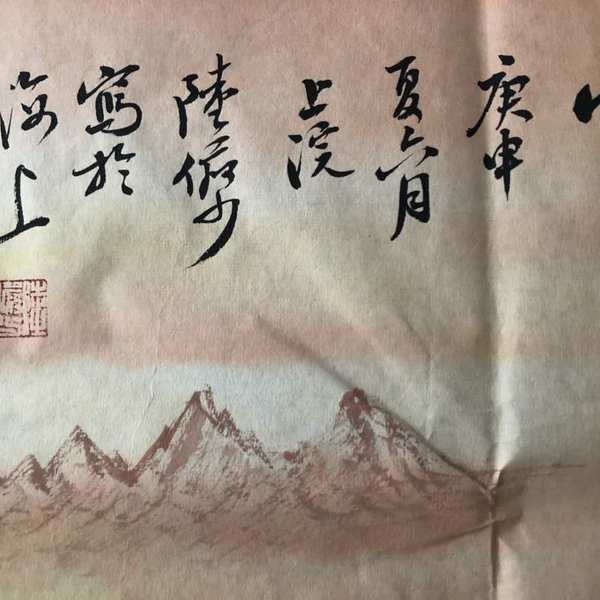 庚申
夏六月
上浣
陸儼少
寫於
海上